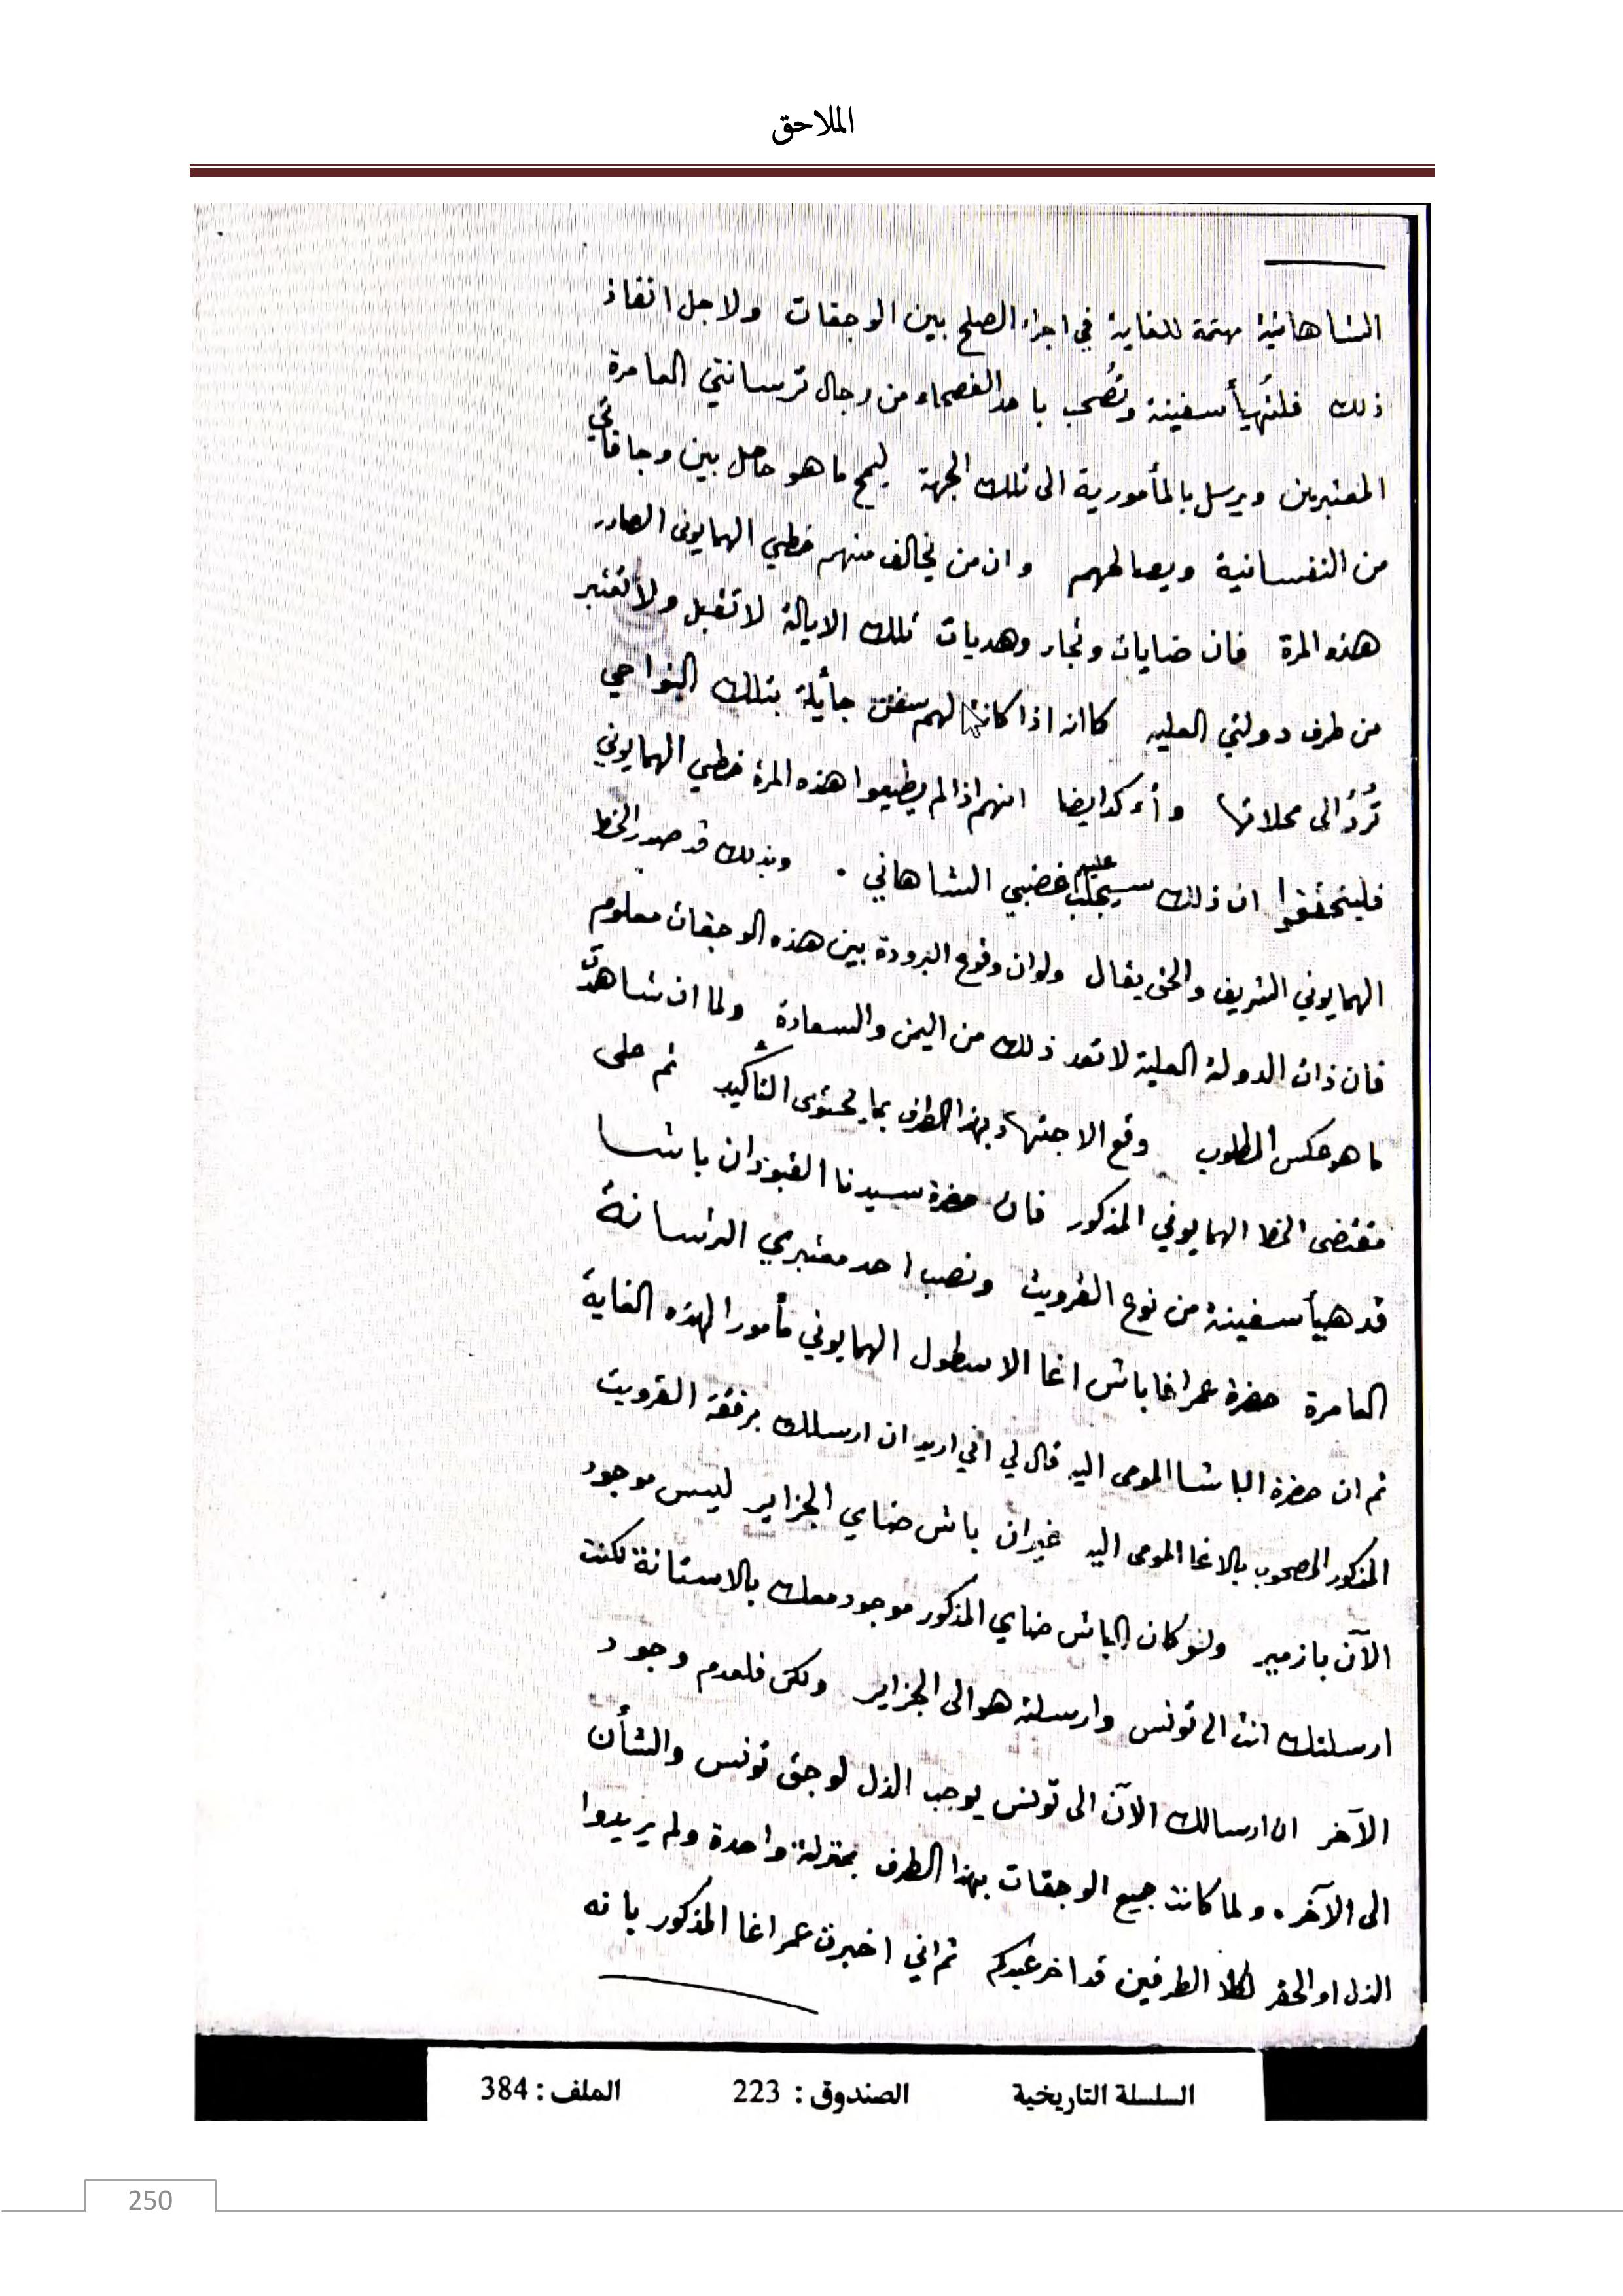 الملاحق
الشاهانية مهتمة للغاية في اجراء الصلح بين الوجقات ولاجل انفاذ
ذلك فلتُهيأ سفينة وتُصحب باحد الفصحاء من رجال ترسانتي العامرة
المعتبرين ويرسل بالمأمورية الى تلك الجهة ليمح ما هو حاصل بين وجاقاتي
من النفسانية ويصالحهم وان من يخالف منهم خطي الهمايونى الصادر
هذه المرة فان ضايات وتجار وهديات تلك الايالة لا تقبل ولا تعتبر
من طرف دولتي العليه كما انه اذا كانت لهم سفن جأيلة بتلك النواحي
تُردُ الى محلاتها وأءكد ايضا انهم اذا لم يطيعوا هذه المرة خطي الهمايوني
فليتحققوا ان ذلك سيجلب عليهم غضبي الشاهاني . وبذلك قد صدر الخط
الهمايوني الشريف والحق يقال ولو ان وقوع البرودة بين هذه الوجقات معلوم
فان ذات الدولة العلية لا تعد ذلك من اليمن والسعادة ولما ان شاهدت
ما هو عكس المطلوب وقع الاجتهاد بهذا الطرف بما يحتوى التاكيد ثم على
مقتضى الخط الهمايوني المذكور فان حضرة سيدنا القبوزان باشا
قد هيأ سفينة من نوع القرويت ونصب احد معتبري الترسانة
العامرة حضرة عمر اغا باش اغا الاسطول الهمايوني مأمورا لهذه الغاية
ثم ان حضرة الباشا المومى اليه قال لي اني اريد ان ارسلك برفقة القرويت
المذكور المصحوب بالاغا المومى اليه غير ان باش ضاي الجزاير ليس موجود
الآن بازمير ولو كان الباش ضاي المذكور موجود معك بالاستانة لكنت
ارسلتك انت الى تونس وارسلته هو الى الجزاير ولكن فلعدم وجود
الآخر ان ارسالك الآن الى تونس يوجب الذل لوجق تونس والشأن
الى الآخر . ولما كانت جميع الوجقات بهذا الطرف بمنزلة واحدة ولم يريدوا
الذل او الحقر لكلا الطرفين قد اخر عبدكم ثم اني اخبرت عمر اغا المذكور بانه
السلسلة التاريخية الصندوق : 223 الملف : 384
250